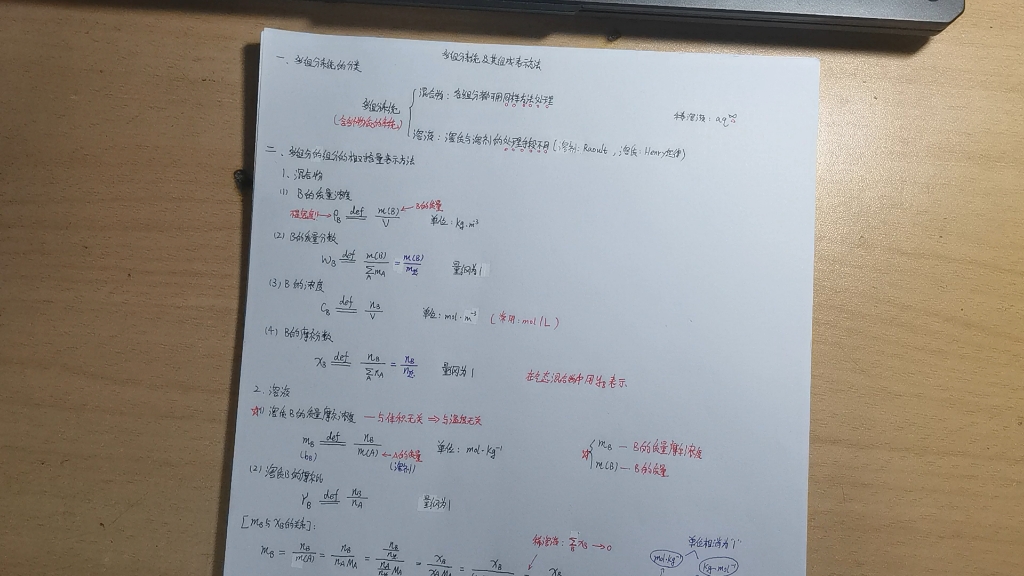 多组分系统及其组成表示法
一、多组分系统的分类
多组分系统
混合物：各组分都可用同样方法处理
溶液：溶质与溶剂的处理手段不同 (溶剂：Raoult，溶质：Henry定律)
稀溶液：aq∞
二、多组分的组分的相对含量表示方法
1、混合物
(1) B的质量浓度
ρB def m(B)/V ← B的质量 单位：kg·m⁻³
(2) B的质量分数
wB def m(B)/∑mA = m(B)/m总 量纲为1
(3) B的浓度
cB def nB/V 单位：mol·m⁻³ (常用：mol/L)
(4) B的摩尔分数
xB def nB/∑nA = nB/n总 量纲为1
在气态混合物中用yB表示.
2、溶液
☆(1) 溶质B的质量摩尔浓度 — 与体积无关 ⇒ 与温度无关
mB def nB/m(A) ← A的质量 单位：mol·kg⁻¹
(bB) (溶剂)
☆ mB — B的质量摩尔浓度
m(B) — B的质量
(2) 溶质B的摩尔比
rB def nB/nA 量纲为1
[mB与xB的关系]：
稀溶液：∑xB → 0
单位相消为"1"
mB = nB/m(A) = nB/nAMA = xB/xAMA =
mol·kg⁻¹ kg·mol⁻¹